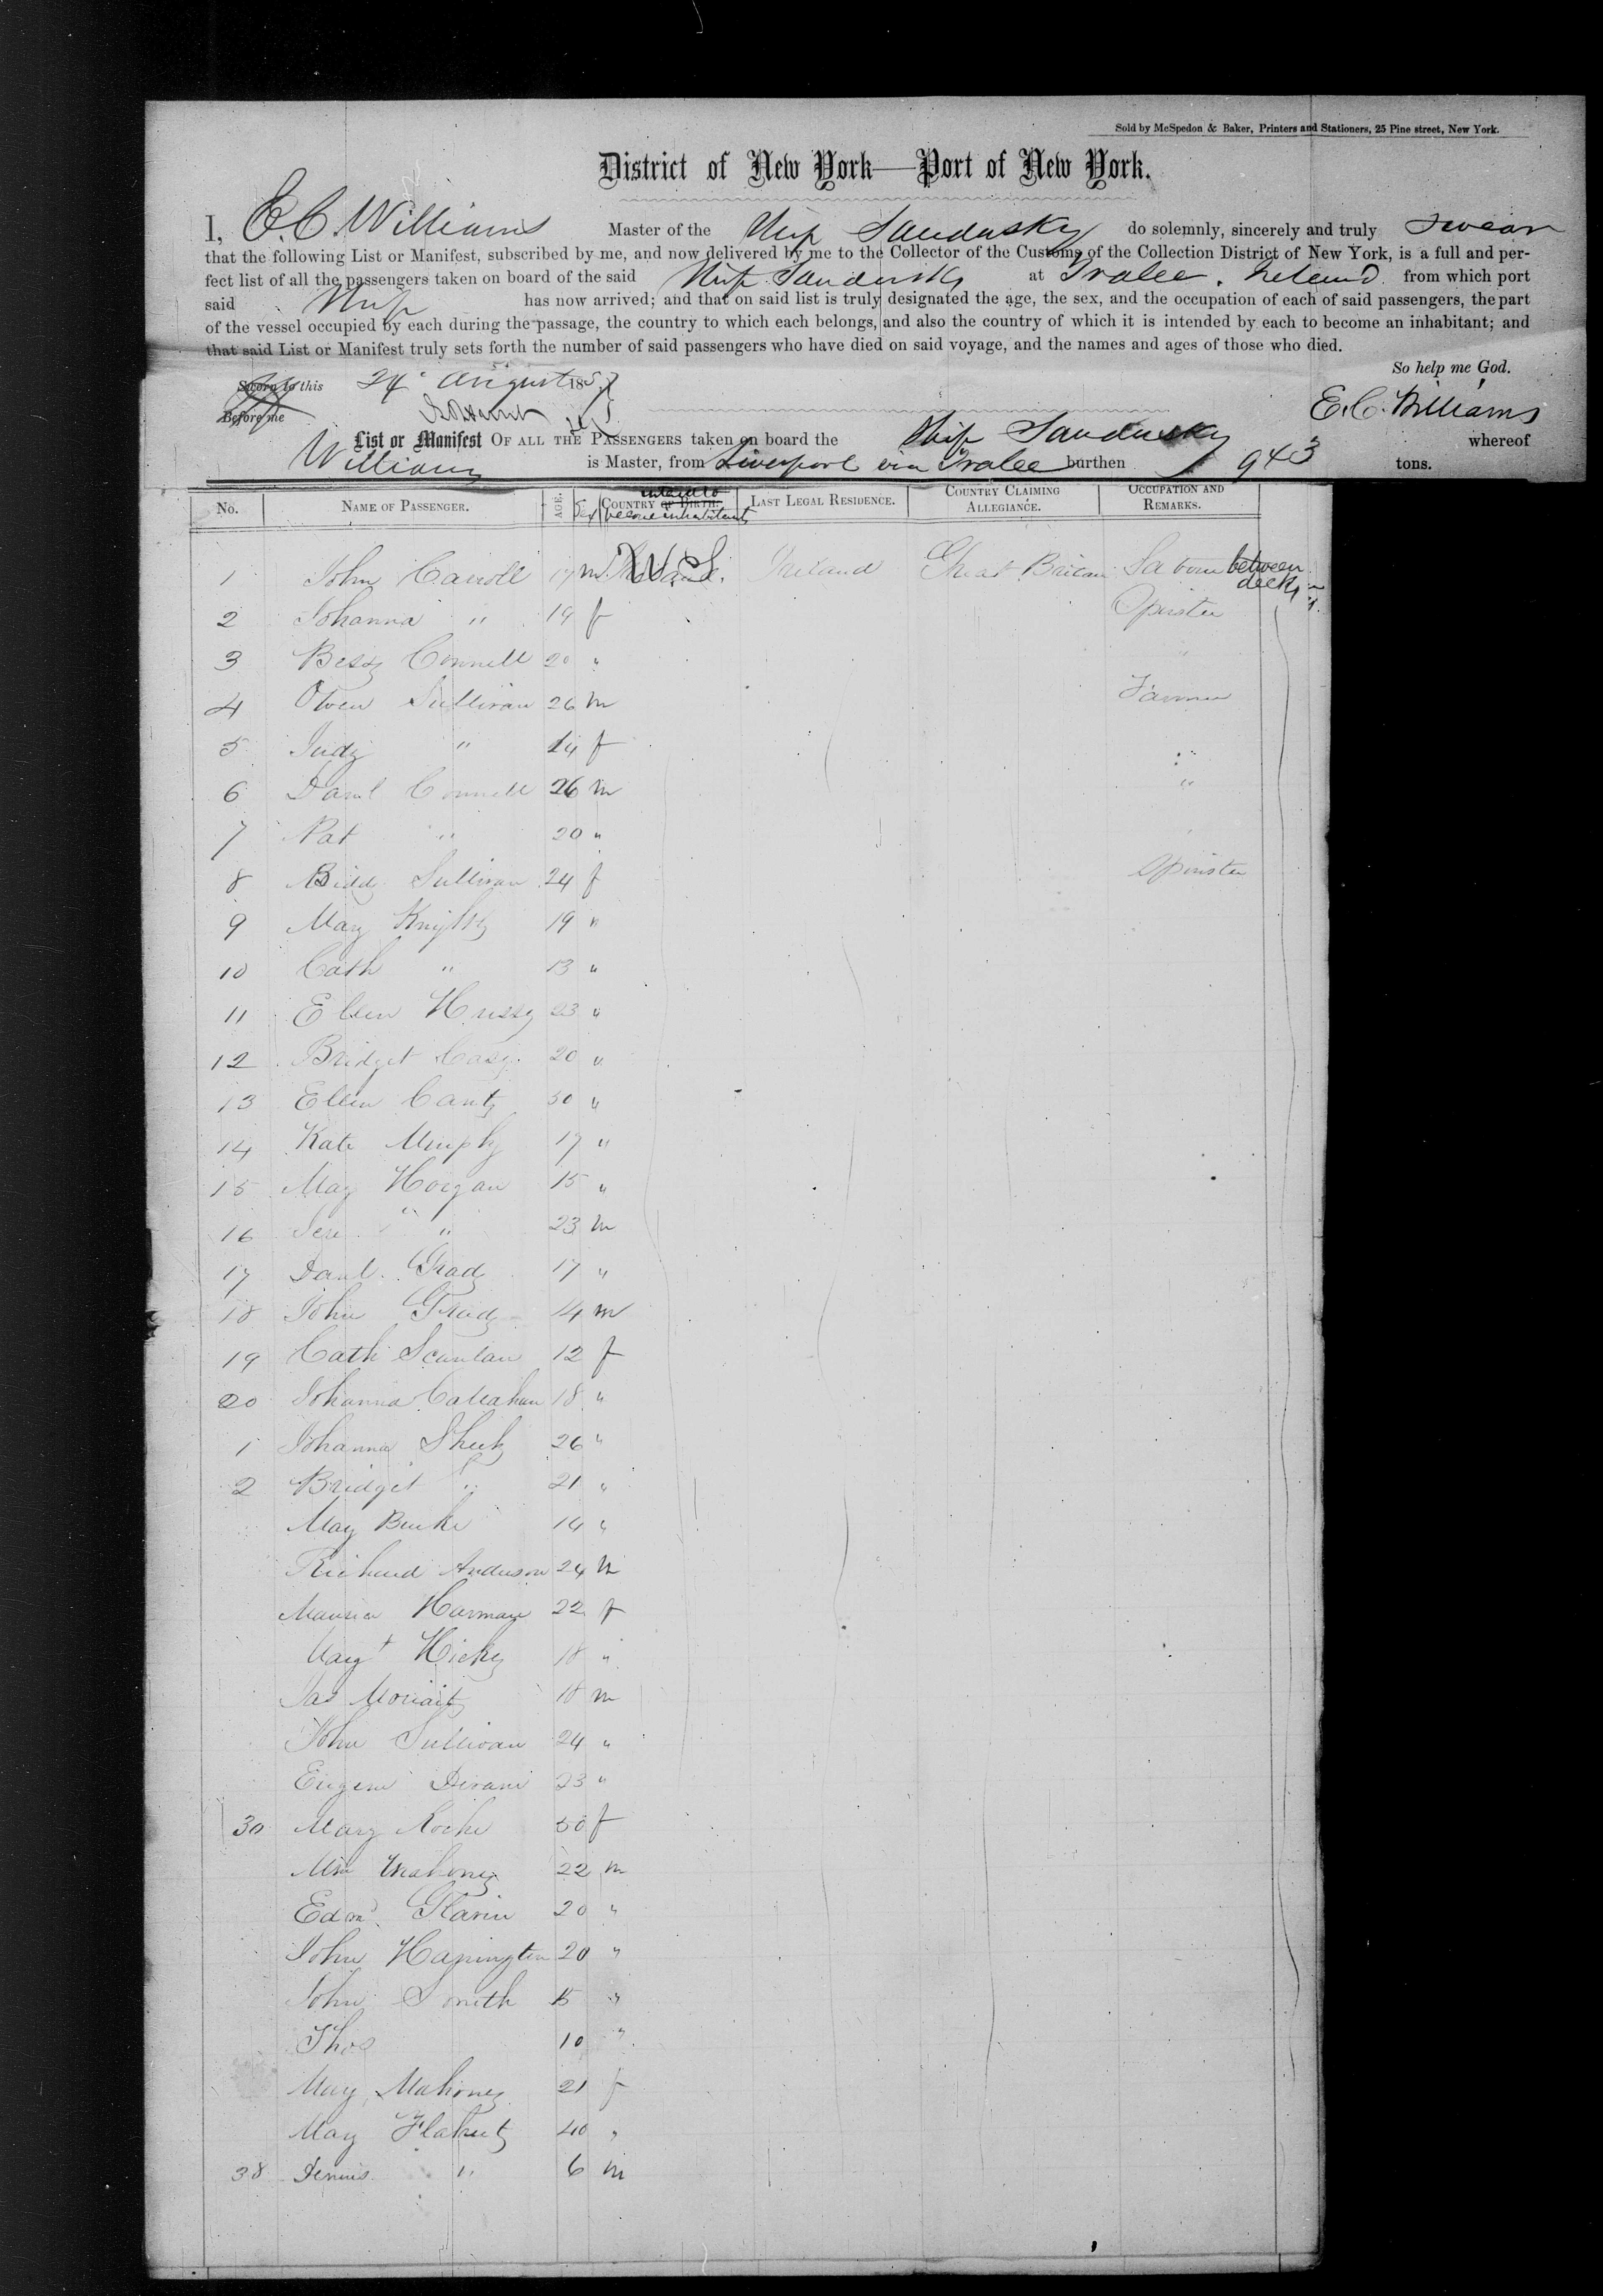 Sold by McSpedon & Baker, Printers and Stationers, 25 Pine street, New York.
District of New York—Port of New York.
I, E. C. Williams Master of the Ship Sandusky do solemnly, sincerely and truly swear
that the following List or Manifest, subscribed by me, and now delivered by me to the Collector of the Customs of the Collection District of New York, is a full and per-
fect list of all the passengers taken on board of the said Ship Sandusky at Tralee, Ireland from which port
said Ship has now arrived; and that on said list is truly designated the age, the sex, and the occupation of each of said passengers, the part
of the vessel occupied by each during the passage, the country to which each belongs, and also the country of which it is intended by each to become an inhabitant; and
that said List or Manifest truly sets forth the number of said passengers who have died on said voyage, and the names and ages of those who died.
So help me God.
Sworn to this 24 August 185
Before me
E. C. Williams
List or Manifest OF ALL THE PASSENGERS taken on board the Ship Sandusky whereof
Williams is Master, from Liverpool via Tralee burthen 943 tons.
No. NAME OF PASSENGER. AGE. Sex COUNTRY OF BIRTH. intend to become inhabitants LAST LEGAL RESIDENCE. COUNTRY CLAIMING ALLEGIANCE. OCCUPATION AND REMARKS.
1 John Carroll 17 m U.S. Ireland Great Britain between decks
2 Johanna " 19 f Spinster
3 Bessy Connell 20 "
4 Owen Sullivan 26 m Farmer
5 Judy " 14 f "
6 Danl Connell 26 m "
7 Pat " 20 "
8 Bidd Sullivan 24 f Spinster
9 May 19 "
10 Cath " 13 "
11 Ellen Hussy 23 "
12 Bridget Casy 20 "
13 Ellen Canty 50 "
14 Kate Murphy 17 "
15 May Horgan 15 "
16 Jere " 23 m
17 Danl Grady 17 "
18 John Grady 14 m
19 Cath Scanlan 12 f
20 Johanna Callahan 18 "
1 Johanna Sheehy 26 "
2 Bridget " 21 "
May Burke 14 "
Richard Anderson 24 m
22 f
Margt Hicky 18 "
Jas Moriarty 18 m
John Sullivan 24 "
Eugene 23 "
30 Mary Roche 50 f
Mahoney 22 m
Edmd 20 "
John 20 "
John Smith 15 "
Thos 10 "
May Mahoney 21 f
May Flaherty 40 "
38 Dennis " 6 m